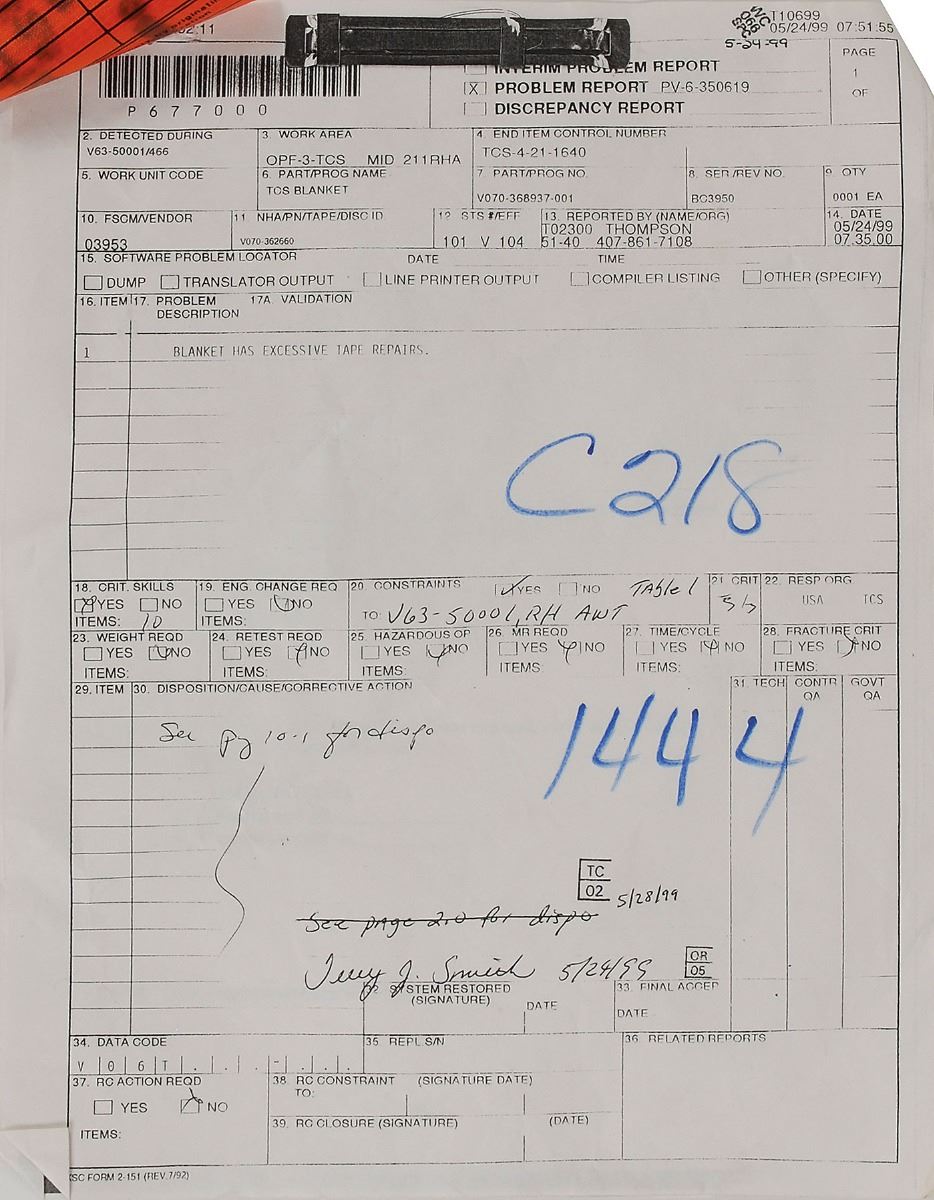 :11
T10699
05/24/99 07:51:55
5-24-99
INTERIM PROBLEM REPORT
PAGE
[X] PROBLEM REPORT PV-6-350619
1
DISCREPANCY REPORT
OF
P 6 7 7 0 0 0
2. DETECTED DURING 3. WORK AREA 4. END ITEM CONTROL NUMBER
V63-50001/466 OPF-3-TCS MID 211RHA TCS-4-21-1640
5. WORK UNIT CODE 6. PART/PROG NAME 7. PART/PROG NO. 8. SER/REV NO. 9. QTY
TCS BLANKET V070-368937-001 BC3950 0001 EA
10. FSCM/VENDOR 11. NHA/PN/TAPE/DISC ID 12. STS #/EFF 13. REPORTED BY (NAME/ORG) 14. DATE
T02300 THOMPSON 05/24/99
03953 V070-362660 101 V 104 51-40 407-861-7108 07.35.00
15. SOFTWARE PROBLEM LOCATOR DATE TIME
DUMP TRANSLATOR OUTPUT LINE PRINTER OUTPUT COMPILER LISTING OTHER (SPECIFY)
16. ITEM 17. PROBLEM 17A. VALIDATION
DESCRIPTION
1 BLANKET HAS EXCESSIVE TAPE REPAIRS.
C218
18. CRIT. SKILLS 19. ENG. CHANGE REQ 20. CONSTRAINTS YES NO TAble 1 21 CRIT 22. RESP ORG
YES NO YES NO 3/3 USA TCS
ITEMS: 10 ITEMS: TO: V63-50001, RH AWT
23. WEIGHT REQD 24. RETEST REQD 25. HAZARDOUS OP 26. MR REQD 27. TIME/CYCLE 28. FRACTURE CRIT
YES NO YES NO YES NO YES NO YES NO YES NO
ITEMS: ITEMS: ITEMS: ITEMS: ITEMS: ITEMS:
29. ITEM 30. DISPOSITION/CAUSE/CORRECTIVE ACTION 31. TECH CONTR GOVT
QA QA
See pg 10-1 for dispo
1444
TC
02 5/28/99
See page 2.0 for dispo
Terry J. Smith 5/24/99 OR
05
SYSTEM RESTORED 33. FINAL ACCEP
(SIGNATURE) DATE DATE
34. DATA CODE 35 REPL S/N 36. RELATED REPORTS
V 0 6 T . . . - . . .
37. RC ACTION REQD 38. RC CONSTRAINT (SIGNATURE DATE)
TO:
YES NO
39. RC CLOSURE (SIGNATURE) (DATE)
ITEMS:
KSC FORM 2-151 (REV. 7/92)